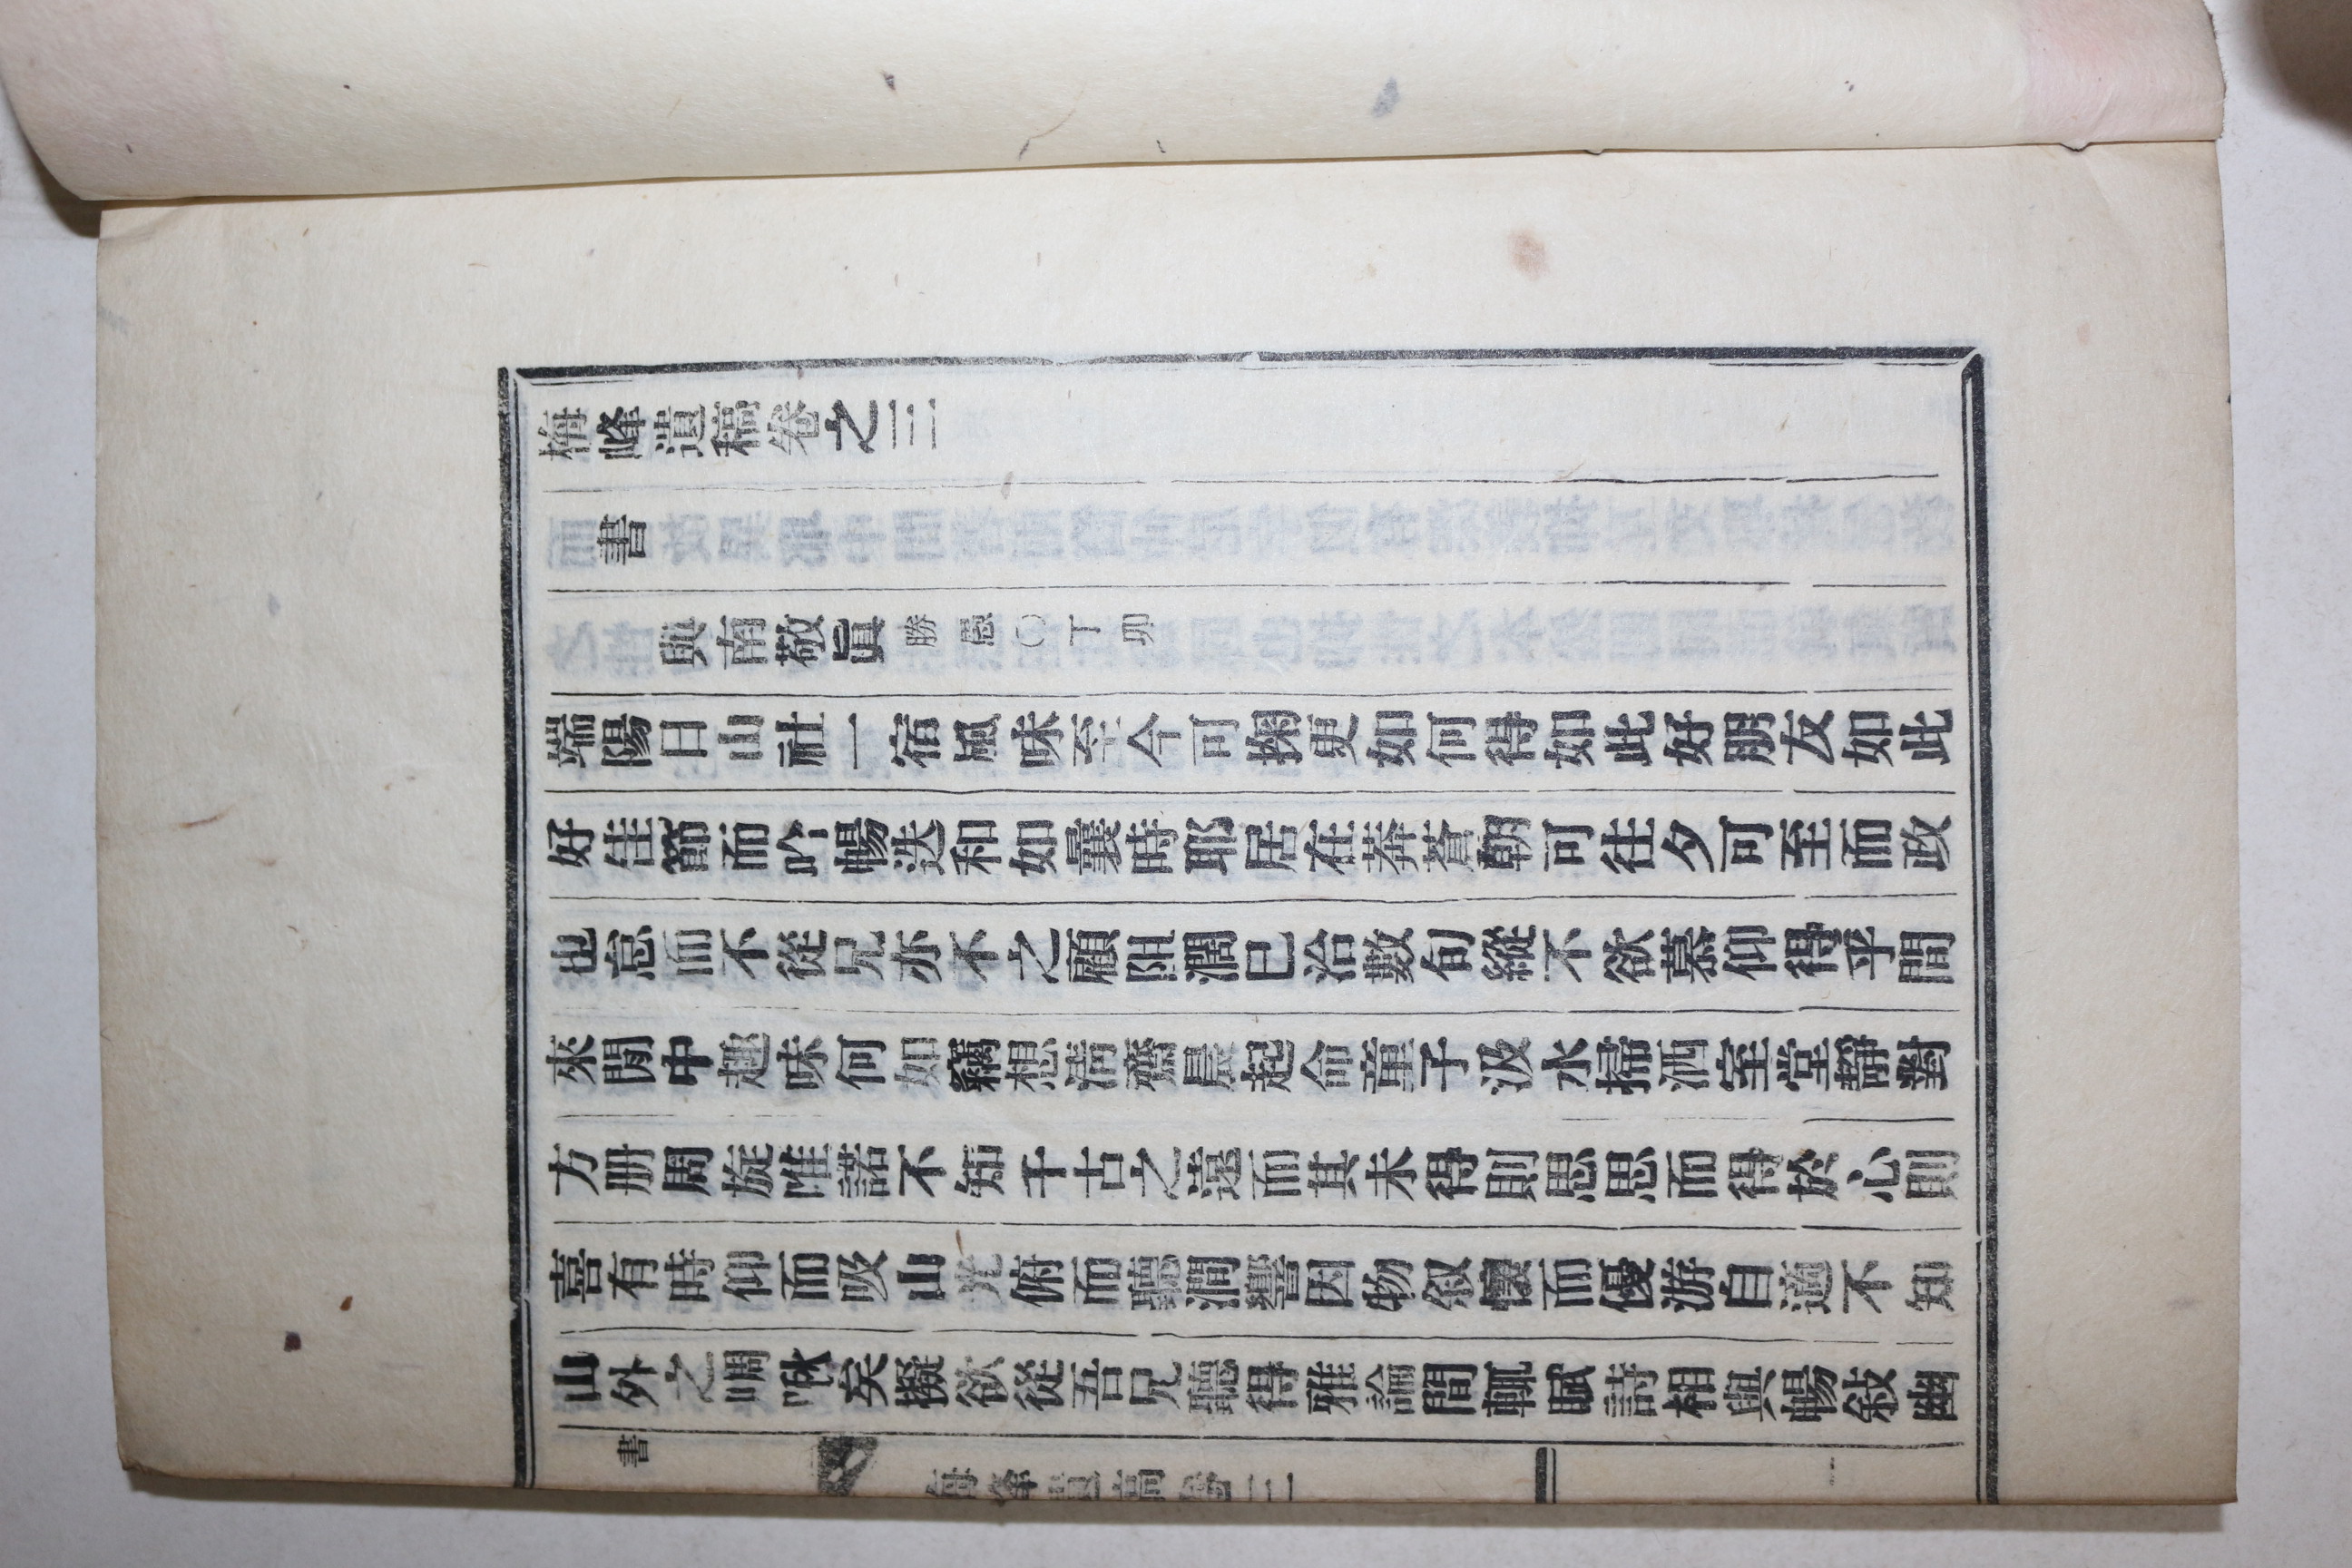 梅峰遺稿卷之三
書
與南敬眞勝愚〇丁卯
端陽日山社一宿風味至今可掬更如何得如此好朋友如此
好佳節而吟暢迭和如曩時耶居在莽蒼朝可往夕可至而政
也怠而不從兄亦不之顧阻濶巳洽數旬縱不欲慕仰得乎間
來閒中趣味何如竊想淸齋晨起命童子汲水掃洒室堂靜對
方册周旋唯諾不知千古之遠而其未得則思思而得於心則
喜有時仰而吸山光俯而聽澗響因物叙懷而優游自適不知
山外之啁啾矣擬欲從吾兄聽得雅論間輒賦詩相與暢敍幽
書
梅峰遺稿卷三
一